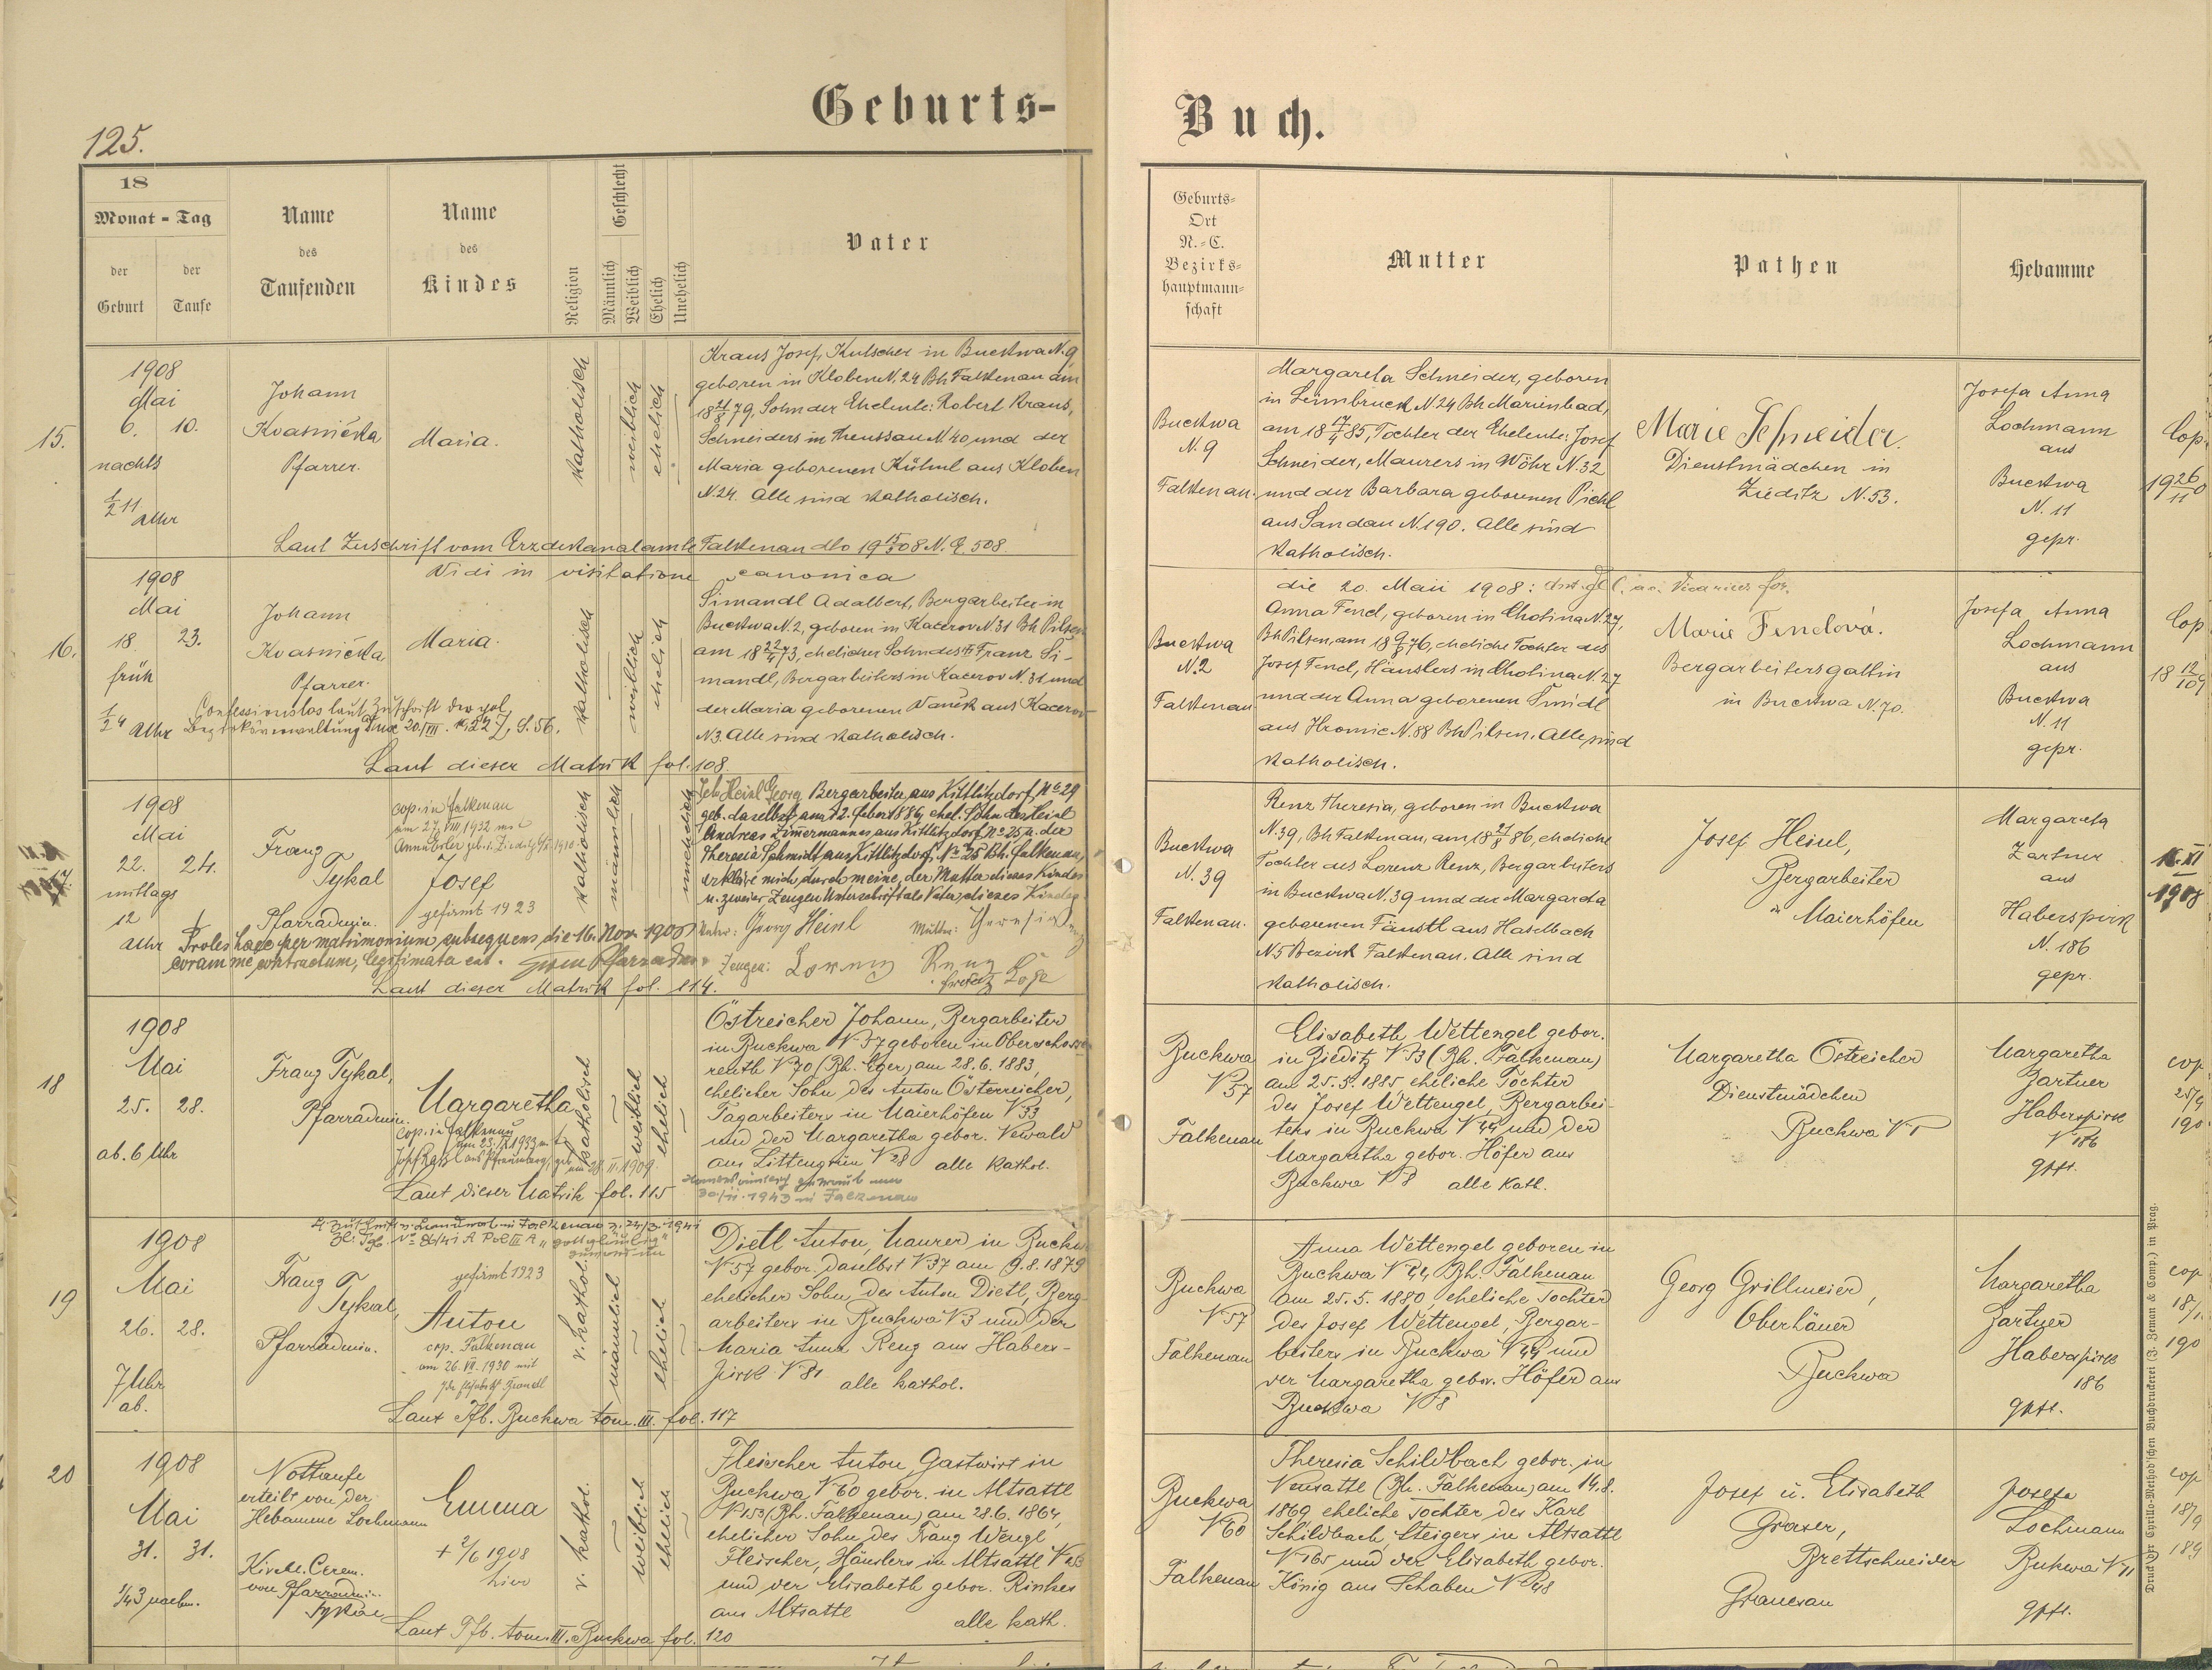 Geburts-
Buch.
125.
18
Monat - Tag
der Geburt
der Taufe
Name des Taufenden
Name des Kindes
Religion
Geschlecht
Männlich
Weiblich
Ehelich
Unehelich
Vater
Geburts-
Ort
N.-C.
Bezirks-
hauptmann-
schaft
Mutter
Pathen
Hebamme
15.
1908
Mai
6. 10.
nachts
½ 11
Uhr
Johann
Kvasnička
Pfarrer.
Maria.
katholisch
weiblich
ehelich
Kraus Josef, Kutscher in Buckwa N. 9,
geboren in Kloben N. 24 Bh Falkenau am
18 21/8 79, Sohn der Eheleute: Robert Kraus,
Schneiders in Theussau N 40 und der
Maria geborenen Kühnl aus Kloben
N. 24. Alle sind katholisch.
Laut Zuschrift vom Erzdekanalamte Falkenau dto 19 15/5 08 N. E. 508.
Buckwa
N. 9
Falkenau.
Margareta Schneider, geboren
in N 24 Bh Marienbad,
am 18 17/4 85, Tochter der Eheleute: Josef
Schneider, Maurers in Wöhr N. 32
und der Barbara geborenen Pichl
aus Sandau N. 190. Alle sind
katholisch.
Marie Schneider.
Dienstmädchen in
Zieditz N. 53.
Josefa Anna
Lochmann
aus
Buckwa
N. 11
gepr.
Cop.
Vidi in visitatione canonica
die 20. Maii 1908:
16.
1908
Mai
18. 23.
früh
½ 4 Uhr
Johann
Kvasnička
Pfarrer.
Maria.
katholisch
weiblich
ehelich
Confessionslos laut Zuschrift der pol.
Bezirksverwaltung Dux 20/III.
Laut dieser Matrik fol. 108.
Simandl Adalbert, Bergarbeiter in
Buckwa N. 2, geboren in Kacerov N. 31 Bh Pilsen
am 18 22/4 73, ehelicher Sohn des Franz Si-
mandl, Bergarbeiters in Kacerov N. 31 und
der Maria geborenen Vaněk aus Kacerov
N 3. Alle sind katholisch.
Buckwa
N. 2
Falkenau
Anna Fencl, geboren in Chotina N. 27,
Bh Pilsen, am 18 9/8 76, eheliche Tochter des
Josef Fencl, Häuslers in Chotina N. 27
und der Anna geborenen Šmidl
aus Hromic N. 88 Bh Pilsen. Alle sind
katholisch.
Marie Fenclová.
Bergarbeitersgattin
in Buckwa N. 70.
Josefa Anna
Lochmann
aus
Buckwa
N. 11
gepr.
Cop
1908
Mai
22. 24.
mittags
12
Uhr
Franz
Tykal
Pfarradmin.
cop. in Falkenau
am 27. VIII 1932 mit
Josef
gefirmt 1923
katholisch
männlich
unehelich
Ich Heinl Georg Bergarbeiter aus Kittlitzdorf, No 29
geb. daselbst am 12. Feber 1884, ehel. Sohn des Heinl
Andreas Zimmermannes aus Kittlitzdorf No 25 u. der
Theresia Schmidt aus Kittlitzdorf No 25 Bh. Falkenau,
erkläre mich durch meine, der Mutter dieses Kindes
u. zweier Zeugen Unterschrift als Vater dieses Kindes
Vater: Georg Heinl Mutter: Theresia
Zeugen: Lorenz Renz
Proles haec per matrimonium subsequens, die 16. Nov. 1908
coram me contractum, legitimata est.
Laut dieser Matrik fol. 114.
Buckwa
N. 39
Falkenau.
Renz Theresia, geboren in Buckwa
N. 39, Bh Falkenau, am 18 27/8 86, eheliche
Tochter des Lorenz Renz, Bergarbeiters
in Buckwa N. 39 und der Margareta
geborenen Fäustl aus Haselbach
N 5 Bezirk Falkenau. Alle sind
katholisch.
Josef Heinl,
Bergarbeiter
in Maierhöfen
Margareta
Zartner
aus
Haberspirk
N. 186
gepr.
16. XI
1908
18
1908
Mai
25. 28.
ab. 6 Uhr
Franz Tykal,
Pfarradmin.
Margaretha
cop. in Falkenau
katholisch
weiblich
ehelich
Laut dieser Matrik fol. 115
Östreicher Johann, Bergarbeiter
in Buckwa N 37 geboren in Oberschossen-
reuth N 70 (Bh. Eger) am 28.6.1883,
ehelicher Sohn des Anton Österreicher,
Tagarbeiters in Maierhöfen N 33
und der Margaretha gebor. Newald
aus Littengrün N 28 alle kathol.
30/11. 1943 in Falkenau
Buckwa
N 57
Falkenau
Elisabeth Wettengel gebor.
in Zieditz N 73 (Bh. Falkenau)
am 25.5.1885 eheliche Tochter
des Josef Wettengel, Bergarbei-
ters in Buckwa N 44 und der
Margaretha gebor. Höfer aus
Buckwa N 8 alle kath.
Margaretha Östreicher
Dienstmädchen
Buckwa N 1
Margaretha
Zartner
Haberspirk
N 186
gpft.
cop.
19
1908
Mai
26. 28.
7 Uhr
ab.
Franz
Tykal,
Pfarradmin.
gefirmt 1923
Anton
cop. Falkenau
am 26. VII. 1930 mit
r. kathol.
männlich
ehelich
Dietl Anton, Maurer in Buckwa
N 57 gebor. daselbst N 37 am 9.8.1879
ehelicher Sohn des Anton Dietl, Berg-
arbeiters in Buckwa N 3 und der
Maria Anna Renz aus Habers-
pirk N 81 alle kathol.
Laut Tfb. Buckwa tom. III. fol. 117
Buckwa
N 57
Falkenau
Anna Wettengel geboren in
Buckwa N 44 Bh. Falkenau
am 25.5.1880 eheliche Tochter
des Josef Wettengel, Bergar-
beiters in Buckwa N 44 und
der Margaretha gebor. Höfer aus
Buckwa N 8
Georg Grillmeier,
Oberhäuer
Buckwa
Margaretha
Zartner
Haberspirk
186
gpft.
cop
20
1908
Mai
31. 31.
¼3 nachm.
Nottaufe
erteilt von der
Hebamme Lochmann
Kirchl. Cerem.
von Pfarradmin.
Tykal
Emma
+ 2/6 1908
hier
r. kathol.
weiblich
ehelich
Fleischer Anton, Gastwirt in
Buckwa N 60 gebor. in Altsattl
N 153 (Bh. Falkenau) am 28.6.1864,
ehelicher Sohn des Franz Wenzl
Fleischer, Häuslers in Altsattl N 153
und der Elisabeth gebor. Rinkes
aus Altsattl alle kath.
Laut Tfb. tom. III. Buckwa fol. 120
Buckwa
N 60
Falkenau
Theresia Schildbach gebor. in
Neusattl (Bh. Falkenau) am 14.8.
1869 eheliche Tochter des Karl
Schildbach, Steigers in Altsattl
N 165 und der Elisabeth gebor.
König aus Schaben N 48
Josef u. Elisabeth
Graser,
Brettschneider
Granesau
Josefa
Lochmann
Bukwa N 11
gpft.
cop
Druck der Cyrillo-Method'schen Buchdruckerei (J. Zeman & Comp.) in Prag.